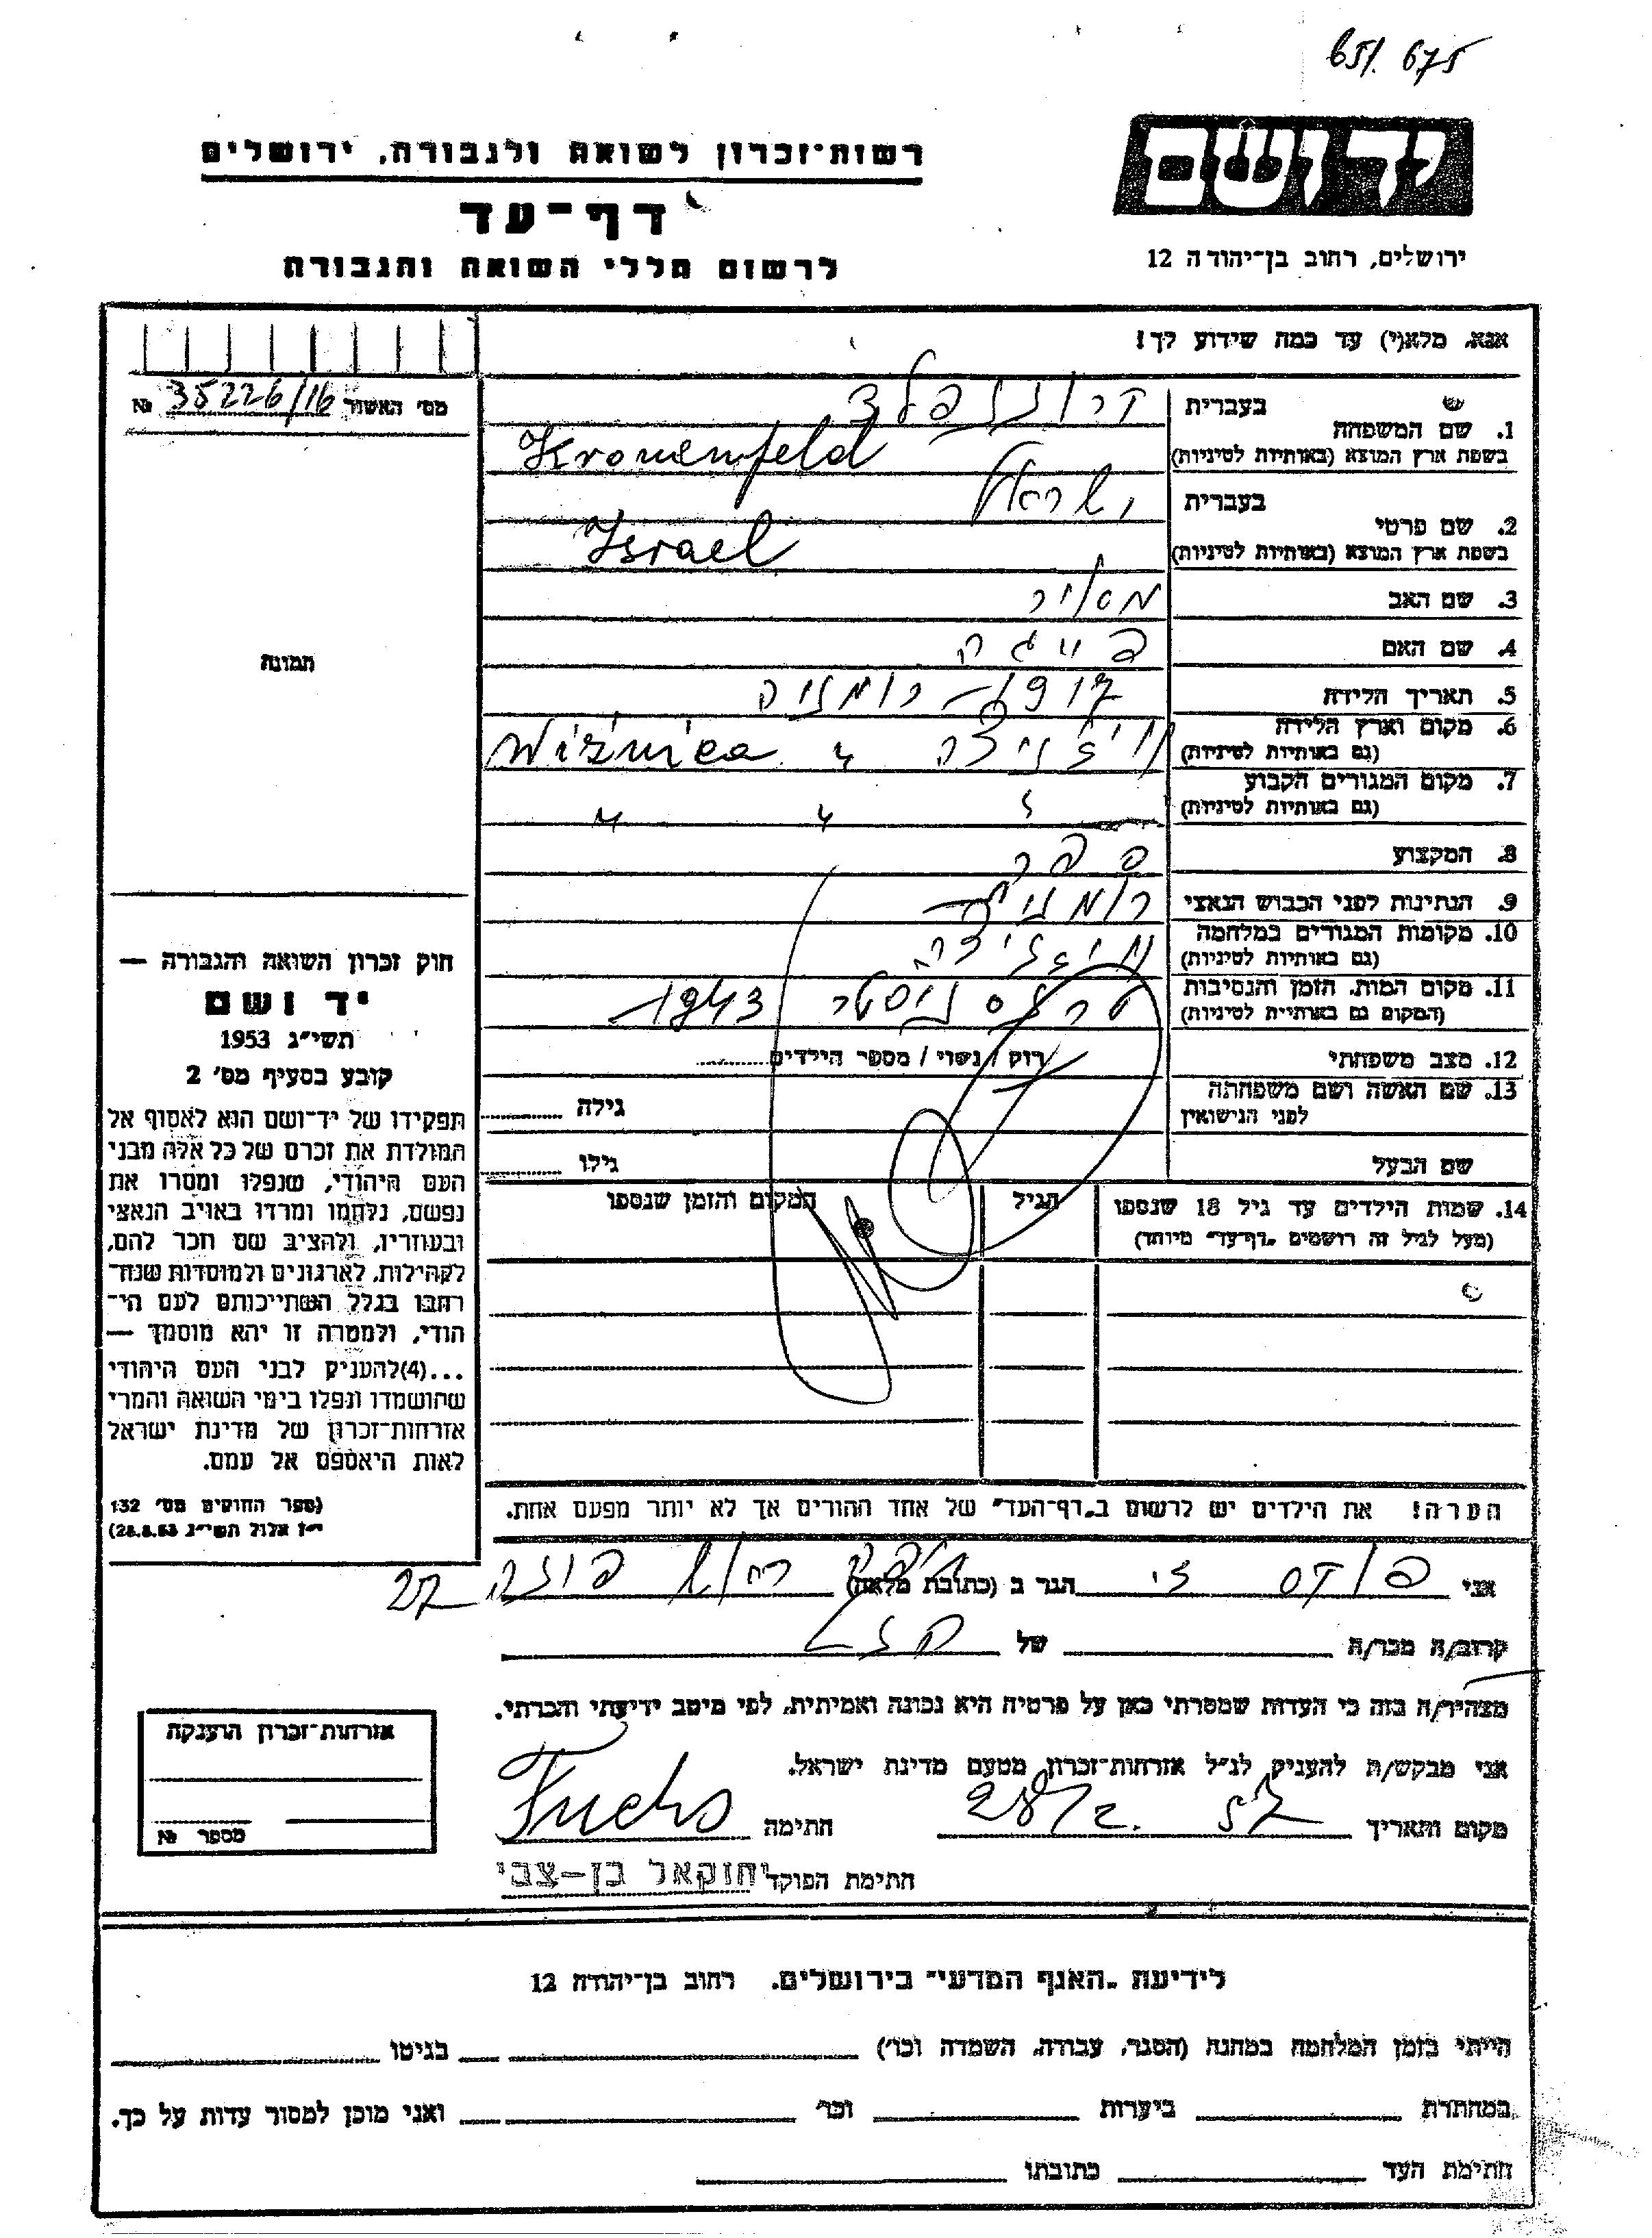 651. 675
יד ושם
ירושלים, רחוב בן־יהודה 12
רשות־זכרון לשואה ולגבורה, ירושלים
דף־עד
לרשום חללי השואה והגבורה
אנא, מלא(י) עד כמה שידוע לך!
מס׳ האשור 35226/16 №
1. שם המשפחה
בעברית קרוננפלד
בשפת ארץ המוצא (באותיות לטיניות) Kronenfeld
2. שם פרטי
בעברית ישראל
בשפת ארץ המוצא (באותיות לטיניות) Israel
3. שם האב מאיר
4. שם האם פייגה
5. תאריך הלידה 1917 רומניה
6. מקום וארץ הלידה
(גם באותיות לטיניות) ויז׳ניצה Wiżnica
7. מקום המגורים הקבוע
(גם באותיות לטיניות)
8. המקצוע ספר
9. הנתינות לפני הכבוש הנאצי רומנית
10. מקומות המגורים במלחמה
(גם באותיות לטיניות) ויז׳ניצה
11. מקום המות, הזמן והנסיבות
(המקום גם באותיות לטיניות) טרנסניסטר 1943
12. מצב משפחתי רוק / נשוי / מספר הילדים
13. שם האשה ושם משפחתה
לפני הנישואין
גילה
שם הבעל
גילו
14. שמות הילדים עד גיל 18 שנספו
(מעל לגיל זה רושמים „דף־עד״ מיוחד)
הגיל
המקום והזמן שנספו
הערה! את הילדים יש לרשום ב„דף־העד״ של אחד ההורים אך לא יותר מפעם אחת.
תמונה
חוק זכרון השואה והגבורה —
יד ושם
תשי״ג 1953
קובע בסעיף מס׳ 2
תפקידו של יד־ושם הוא לאסוף אל
המולדת את זכרם של כל אלה מבני
העם היהודי, שנפלו ומסרו את
נפשם, נלחמו ומרדו באויב הנאצי
ובעוזריו, ולהציב שם וזכר להם,
לקהילות, לארגונים ולמוסדות שנח־
רבו בגלל השתייכותם לעם הי־
הודי, ולמטרה זו יהא מוסמך —
...(4)להעניק לבני העם היהודי
שהושמדו ונפלו בימי השואה והמרי
אזרחות־זכרון של מדינת ישראל
לאות היאספם אל עמם.
(ספר החוקים מס׳ 132
י״ז אלול תשי״ג 28.8.53)
אני פוקס הגר ב (כתובת מלאה) חיפה רחוב 27
קרוב/ה מכר/ה של
מצהיר/ה בזה כי העדות שמסרתי כאן על פרטיה היא נכונה ואמיתית, לפי מיטב ידיעתי והכרתי.
אני מבקש/ת להעניק לנ״ל אזרחות־זכרון מטעם מדינת ישראל.
מקום ותאריך 28/2. 57 חתימה Fuchs
חתימת הפוקד יחזקאל בן-צבי
אזרחות־זכרון הוענקה
מספר №
לידיעת „האגף המדעי״ בירושלים, רחוב בן־יהודה 12
הייתי בזמן המלחמה במחנה (הסגר, עבודה, השמדה וכו׳) בגיטו
במחתרת ביערות וכו׳ ואני מוכן למסור עדות על כך.
חתימת העד כתובתו